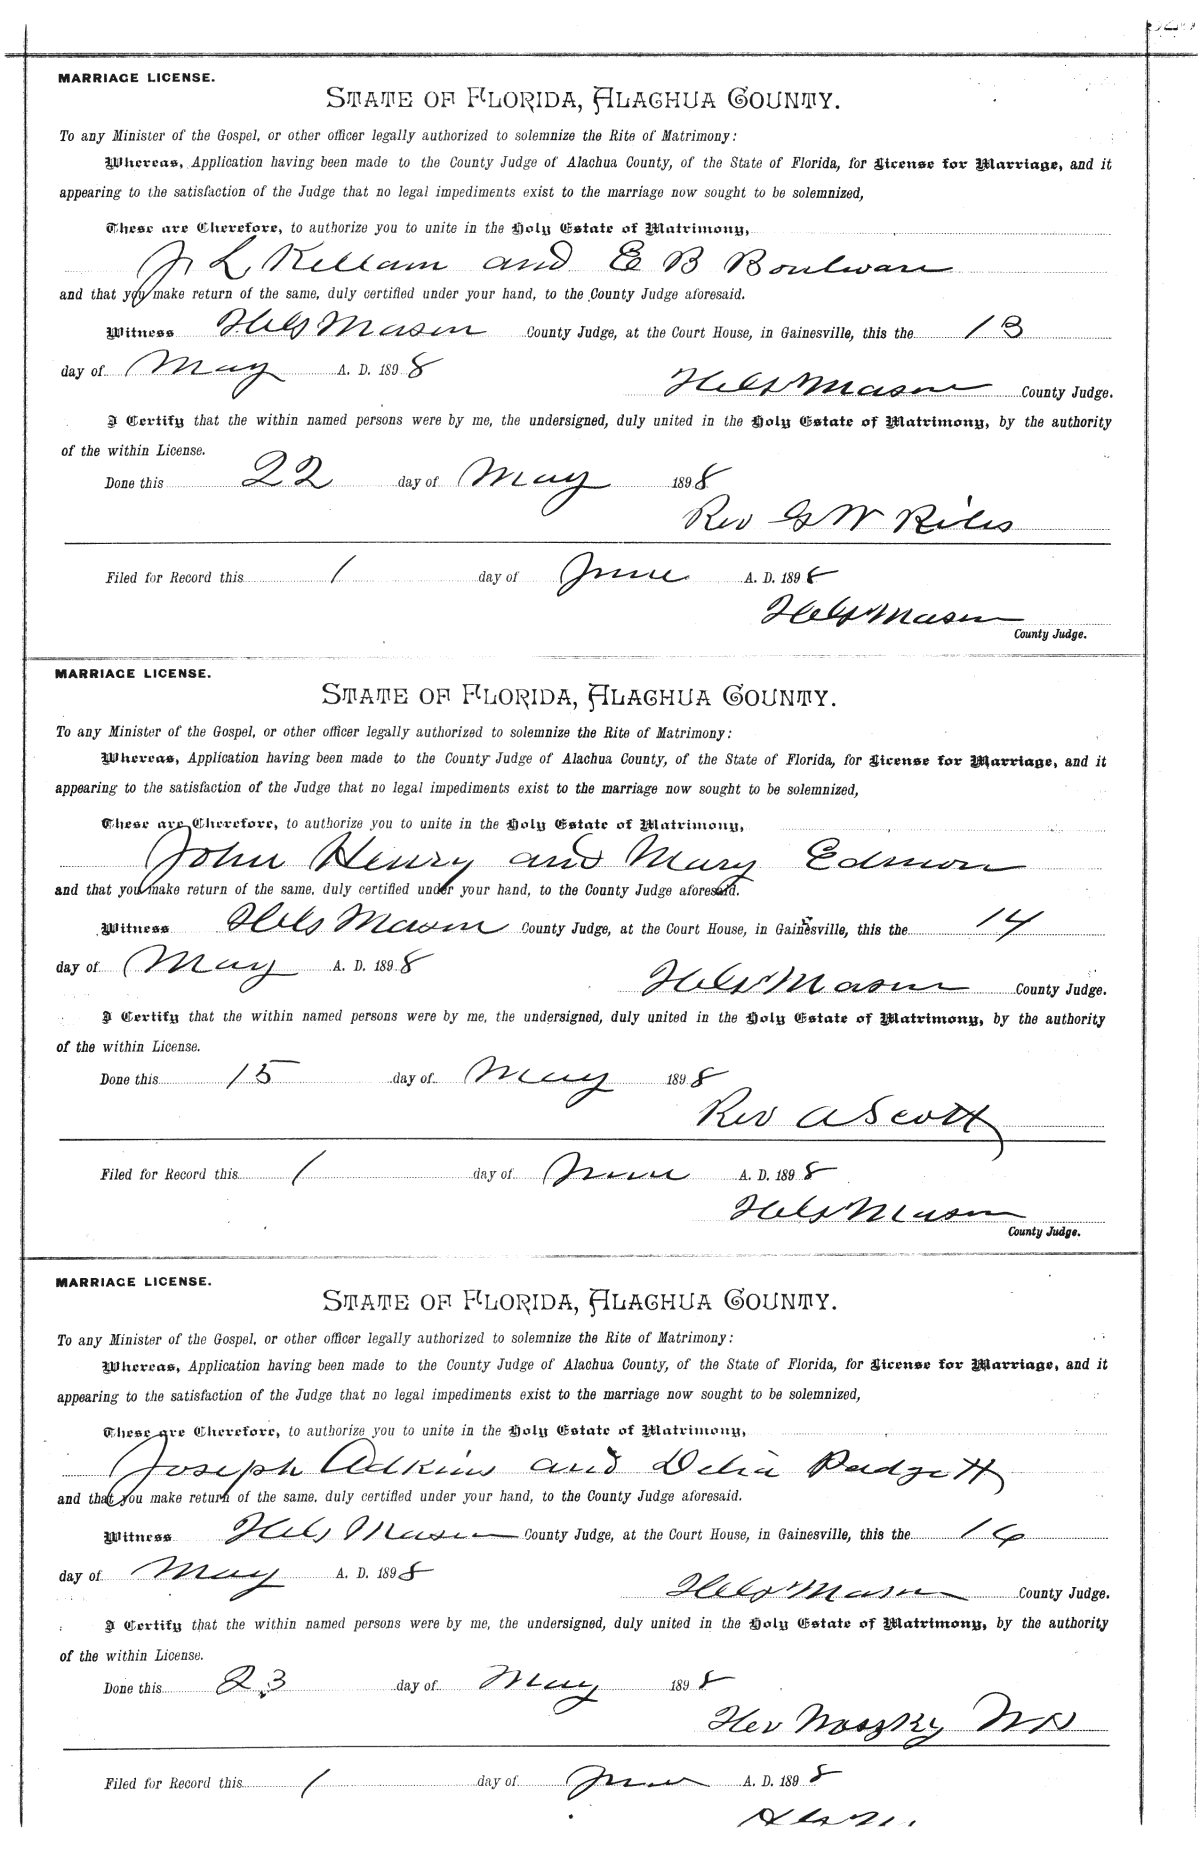 MARRIAGE LICENSE.
STATE OF FLORIDA, ALACHUA COUNTY.
To any Minister of the Gospel, or other officer legally authorized to solemnize the Rite of Matrimony:
Whereas, Application having been made to the County Judge of Alachua County, of the State of Florida, for License for Marriage, and it
appearing to the satisfaction of the Judge that no legal impediments exist to the marriage now sought to be solemnized,
These are Therefore, to authorize you to unite in the Holy Estate of Matrimony,
J L Kellam and E B Boulware
and that you make return of the same, duly certified under your hand, to the County Judge aforesaid.
Witness Mason County Judge, at the Court House, in Gainesville, this the 13
day of May A. D. 1898
Mason County Judge.
I Certify that the within named persons were by me, the undersigned, duly united in the Holy Estate of Matrimony, by the authority
of the within License.
Done this 22 day of May 1898
Rev G W Riles
Filed for Record this 1 day of June A. D. 1898
Mason
County Judge.
MARRIAGE LICENSE.
STATE OF FLORIDA, ALACHUA COUNTY.
To any Minister of the Gospel, or other officer legally authorized to solemnize the Rite of Matrimony:
Whereas, Application having been made to the County Judge of Alachua County, of the State of Florida, for License for Marriage, and it
appearing to the satisfaction of the Judge that no legal impediments exist to the marriage now sought to be solemnized,
These are Therefore, to authorize you to unite in the Holy Estate of Matrimony,
John Henry and Mary Edmon
and that you make return of the same, duly certified under your hand, to the County Judge aforesaid.
Witness Mason County Judge, at the Court House, in Gainesville, this the 14
day of May A. D. 1898
Mason County Judge.
I Certify that the within named persons were by me, the undersigned, duly united in the Holy Estate of Matrimony, by the authority
of the within License.
Done this 15 day of May 1898
Rev A Scott
Filed for Record this 1 day of June A. D. 1898
Mason
County Judge.
MARRIAGE LICENSE.
STATE OF FLORIDA, ALACHUA COUNTY.
To any Minister of the Gospel, or other officer legally authorized to solemnize the Rite of Matrimony:
Whereas, Application having been made to the County Judge of Alachua County, of the State of Florida, for License for Marriage, and it
appearing to the satisfaction of the Judge that no legal impediments exist to the marriage now sought to be solemnized,
These are Therefore, to authorize you to unite in the Holy Estate of Matrimony,
Joseph Adkins and Delia Padgett
and that you make return of the same, duly certified under your hand, to the County Judge aforesaid.
Witness Mason County Judge, at the Court House, in Gainesville, this the 16
day of May A. D. 1898
Mason County Judge.
I Certify that the within named persons were by me, the undersigned, duly united in the Holy Estate of Matrimony, by the authority
of the within License.
Done this 23 day of May 1898
Filed for Record this 1 day of June A. D. 1898